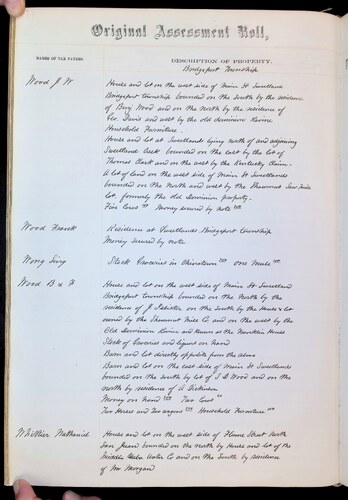 Original Assessment Roll,
NAMES OF TAX PAYERS.
DESCRIPTION OF PROPERTY.
Bridgeport Township
Wood J. W. House and lot on the west side of Main St Sweetland
Bridgeport township bounded on the South by the residence
of Benj Wood and on the North by the residence of
Geo. Davis and west by the old dominion Ravine
Household Furniture.
House and lot at Sweetlands lying north of and adjoining
Sweetland Creek bounded on the East by the lot of
Thomas Clark and on the west by the Kentucky Claim.
A lot of land on the west side of Main St Sweetlands
bounded on the North and west by the Shawmut
lot, formerly the Old Dominion property.
Five Cows Money secured by note
Wood Frank Residence at Sweetlands Bridgeport township
Money secured by note
Wong Sing Stock Groceries in Chinatown one mule
Wood B & F House and lot on the west side of Main St Sweetland
Bridgeport township bounded on the North by the
residence of J. on the South by the House & lot
owned by the Shawmut Mill Co and on the west by the
Old Dominion Ravine and known as the Franklin House
Stock of Groceries and liquors on hand
Barn and lot directly opposite from the above
Barn and lot on the East side of Main St Sweetlands
bounded on the South by lot of J. W Wood and on the
north by residence of A.
Money on hand Two Cows
Two Horses and two wagons Household Furniture
Whittier Nathaniel House and lot on the west side of Flume Street North
San Juan bounded on the north by House and lot of the
Middle Yuba Water Co and on the South by residence
of Mr Morgan